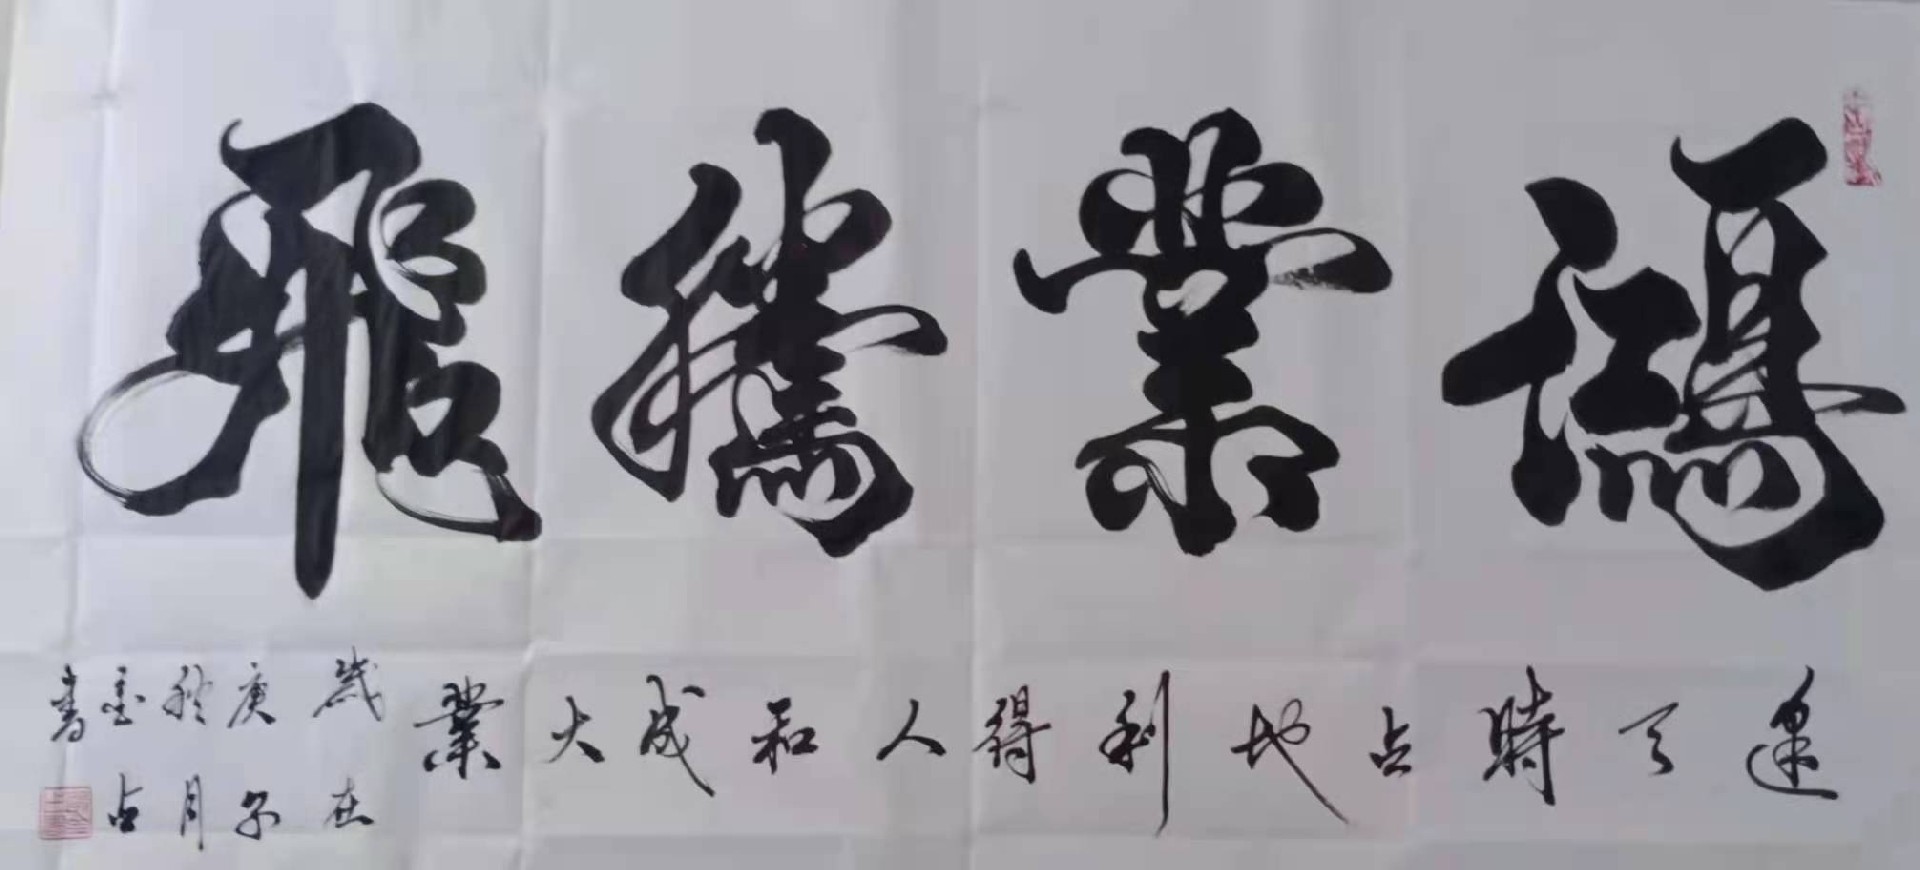 鴻業騰飛
逢天時占地利得人和成大業
歲在
庚子
秋月
占
書